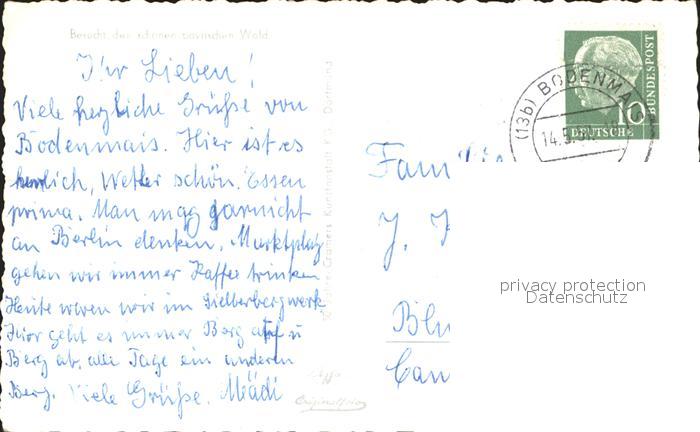 Besucht den schönen bayrischen Wald
Ihr Lieben!
Viele herzliche Grüße von
Bodenmais. Hier ist es
herrlich, Wetter schön. Essen
prima. Man mag garnicht
an Berlin denken. Marktplatz
gehen wir immer Kaffee trinken
Heute waren wir im Silberbergwerk
Hier geht es immer Berg auf u
Berg ab, alle Tage ein anderen
Berg. Viele Grüße. Mädi
Cramers Kunstanstalt KG. Dortmund
Originalfoto
(13b) BODENMAIS
14.5.
10
DEUTSCHE
BUNDESPOST
Familie
J.
Bln
Cam
privacy protection
Datenschutz